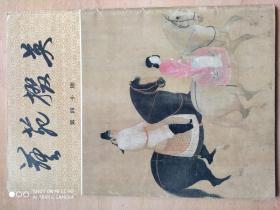 艺苑掇英
第四十期
SHOT ON REDMI
AI TRIPLE CAMERA